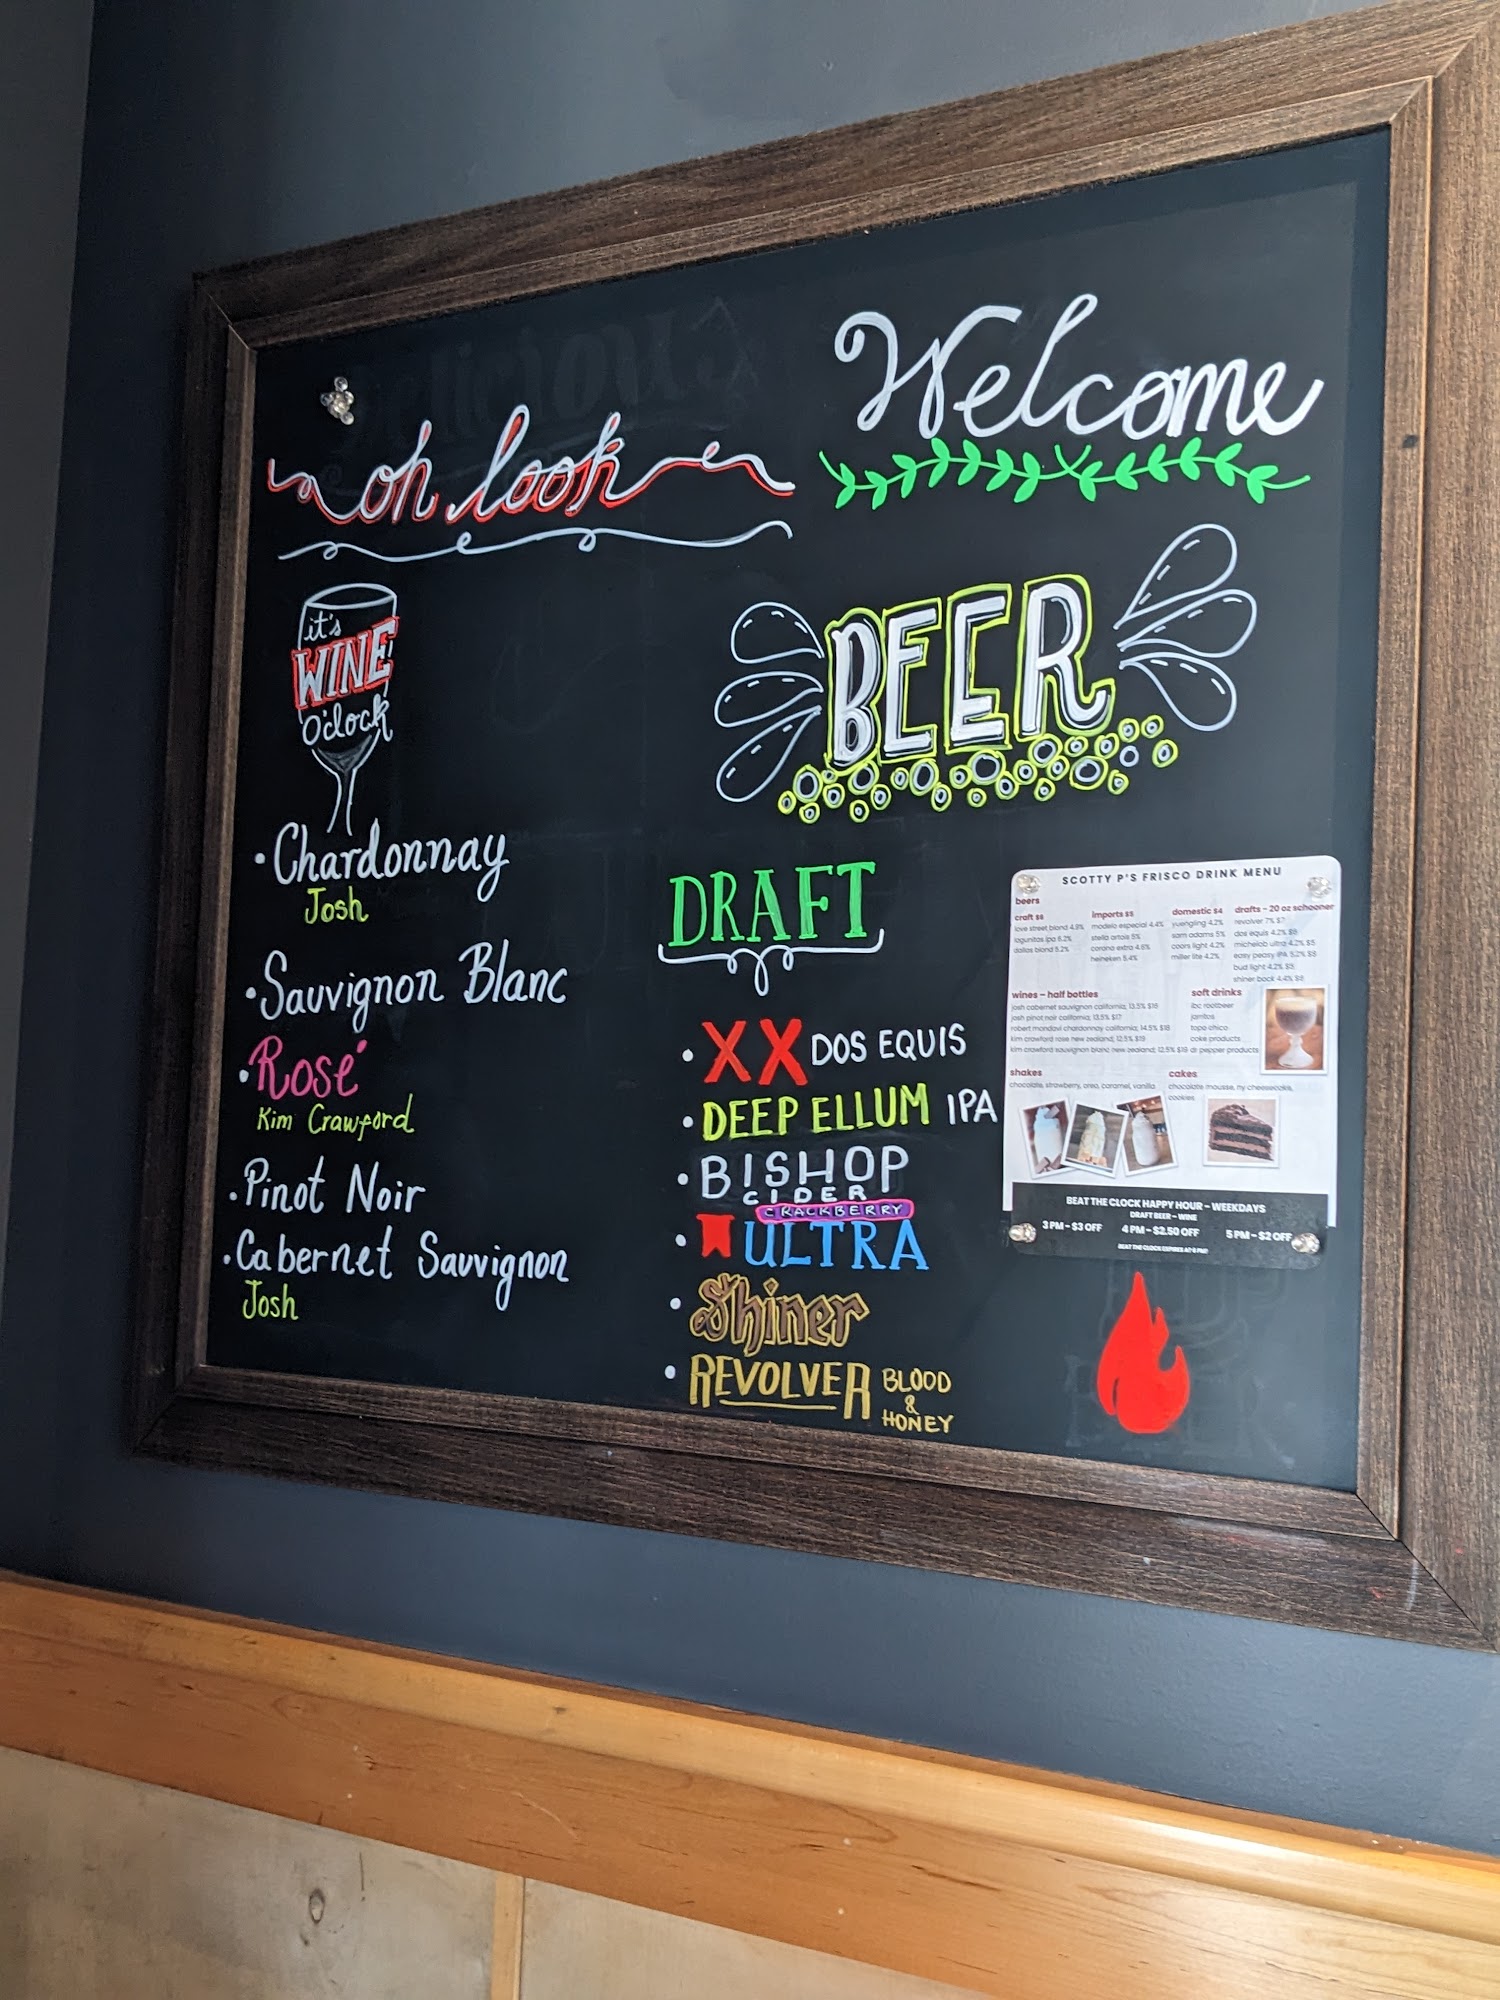 Welcome
oh look
it's
WINE
O'clock
BEER
• Chardonnay
Josh
• Sauvignon Blanc
• Rosé
Kim Crawford
• Pinot Noir
• Cabernet Sauvignon
Josh
DRAFT
• XX DOS EQUIS
• DEEP ELLUM IPA
• BISHOP
CIDER
CRACKBERRY
• ULTRA
• Shiner
• REVOLVER BLOOD
&
HONEY
SCOTTY P'S FRISCO DRINK MENU
beers
craft $6
love street blond 4.9%
lagunitas ipa 6.2%
dallas blond 5.2%
imports $5
modelo especial 4.4%
stella artois 5%
corona extra 4.6%
heineken 5.4%
domestic $4
yuengling 4.2%
sam adams 5%
coors light 4.2%
miller lite 4.2%
drafts - 20 oz schooner
revolver 7% $7
dos equis 4.2% $6
michelob ultra 4.2% $5
easy peasy IPA 5.2%
bud light 4.2% $5
shiner bock 4.4% $6
wines – half bottles
josh cabernet sauvignon california; 13.5% $16
josh pinot noir california; 13.5% $17
robert mondavi chardonnay california; 14.5% $18
kim crawford rose new zealand; 12.5% $19
kim crawford sauvignon blanc new zealand; 12.5% $19
soft drinks
ibc rootbeer
jarritos
topo chico
coke products
dr pepper products
shakes
chocolate, strawberry, oreo, caramel, vanilla
cakes
chocolate mousse, ny cheesecake,
cookies
BEAT THE CLOCK HAPPY HOUR – WEEKDAYS
DRAFT BEER – WINE
3 PM – $3 OFF 4 PM – $2.50 OFF 5 PM – $2 OFF
BEAT THE CLOCK EXPIRES AT 6 PM!